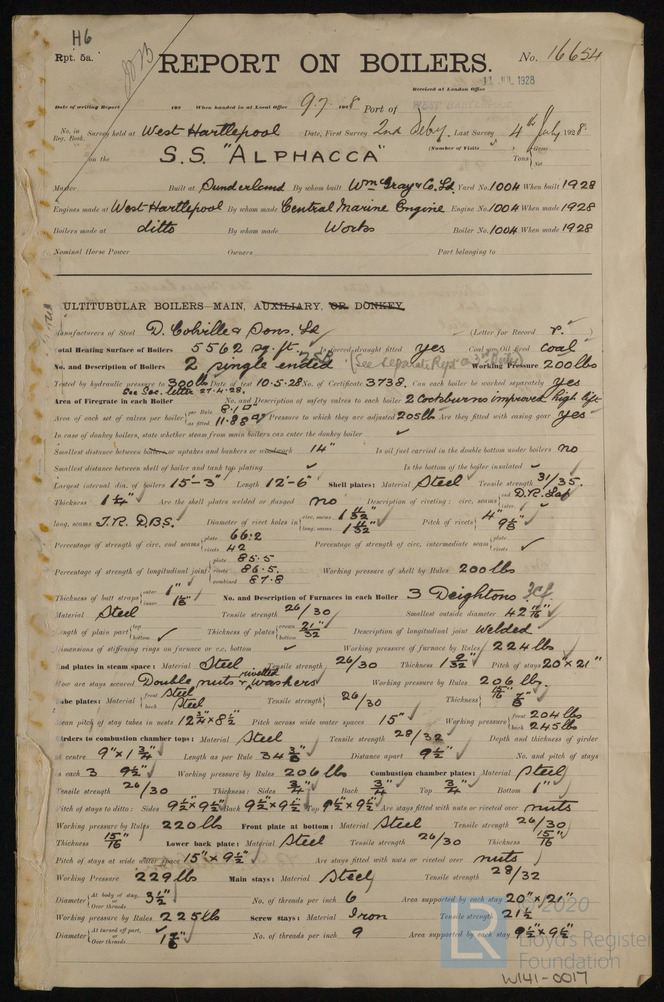 H6
Rpt. 5a.
REPORT ON BOILERS.
No. 16654
Received at London Office
11 JUL 1928
Date of writing Report 192 When handed in at Local Office 9.7. 1928 Port of WEST HARTLEPOOL
No. in Reg. Book. Survey held at West Hartlepool Date, First Survey 2nd Feby. Last Survey 4th July 1928.
(Number of Visits
on the S.S. "ALPHACCA" Tons { Gross Net
Master Built at Sunderland By whom built Wm Gray & Co. Ld. Yard No. 1004 When built 1928
Engines made at West Hartlepool By whom made Central Marine Engine Engine No. 1004 When made 1928
Boilers made at ditto By whom made Works Boiler No. 1004 When made 1928
Nominal Horse Power Owners Port belonging to
ULTITUBULAR BOILERS MAIN, AUXILIARY, OR DONKEY.
anufacturers of Steel D. Colville & Sons. Ld (Letter for Record r. )
Total Heating Surface of Boilers 5562 sq. ft. Is forced draught fitted yes Coal or Oil fired coal
No. and Description of Boilers 2 single ended 2SB (See separate Rept on 3rd Boiler) Working Pressure 200 lbs
Tested by hydraulic pressure to 300 lbs Date of test 10.5.28 No. of Certificate 3738. Can each boiler be worked separately yes
See Sec. letter 27.4.28.
Area of Firegrate in each Boiler No. and Description of safety valves to each boiler 2 Cockburns improved high lift
Area of each set of valves per boiler { per Rule 8.10 as fitted 11.88 Pressure to which they are adjusted 205 lb Are they fitted with easing gear yes
In case of donkey boilers, state whether steam from main boilers can enter the donkey boiler ✓
Smallest distance between boilers or uptakes and bunkers or woodwork 14" Is oil fuel carried in the double bottom under boilers no
Smallest distance between shell of boiler and tank top plating ✓ Is the bottom of the boiler insulated ✓
Largest internal dia. of boilers 15'-3" Length 12'-6" Shell plates: Material Steel Tensile strength 31/35.
Thickness 1 1/4" Are the shell plates welded or flanged no Description of riveting: circ. seams { end D.R. Lap inter. ✓
long. seams T.R. DBS. Diameter of rivet holes in { circ. seams 1 11/32" long. seams 1 11/32" Pitch of rivets { 4" 9 5/8"
Percentage of strength of circ. end seams { plate 66.2 rivets 42 Percentage of strength of circ. intermediate seam { plate rivets ✓
Percentage of strength of longitudinal joint { plate 85.5 rivets 86.5. combined 87.8 Working pressure of shell by Rules 200 lbs
Thickness of butt straps { outer 1" inner 1 1/8" No. and Description of Furnaces in each Boiler 3 Deightons 3cf
Material Steel Tensile strength 26/30 Smallest outside diameter 42 11/16"
ength of plain part { top bottom ✓ Thickness of plates { crown bottom 21/32" Description of longitudinal joint Welded
Dimensions of stiffening rings on furnace or c.c. bottom ✓ Working pressure of furnace by Rules 224 lbs
End plates in steam space: Material Steel Tensile strength 26/30 Thickness 1 9/32" Pitch of stays 20" x 21"
How are stays secured Double nuts & rivetted washers Working pressure by Rules 206 lbs.
ube plates: Material { front Steel back Steel Tensile strength { 26/30 Thickness { 15/16" 7/8"
ean pitch of stay tubes in nests 12 3/4" x 8 1/2" Pitch across wide water spaces 15" Working pressure { front 204 lbs back 245 lbs
irders to combustion chamber tops: Material Steel Tensile strength 28/32 Depth and thickness of girder
at centre 9" x 1 3/4" Length as per Rule 34 3/8" Distance apart 9 1/2" No. and pitch of stays
in each 3 9 1/2" Working pressure by Rules 206 lbs Combustion chamber plates: Material Steel
Tensile strength 26/30 Thickness: Sides 3/4" Back 3/4" Top 3/4" Bottom 1"
Pitch of stays to ditto: Sides 9 1/2" x 9 1/2" Back 9 1/2" x 9 1/2" Top 9 1/2" x 9 1/2" Are stays fitted with nuts or riveted over nuts
Working pressure by Rules 220 lbs Front plate at bottom: Material Steel Tensile strength 26/30
Thickness 15/16" Lower back plate: Material Steel Tensile strength 26/30 Thickness 15/16"
Pitch of stays at wide water space 15" x 9 1/2" Are stays fitted with nuts or riveted over nuts
Working Pressure 229 lbs Main stays: Material Steel Tensile strength 28/32
Diameter { At body of stay, or Over threads 3 1/2" No. of threads per inch 6 Area supported by each stay 20" x 21"
Working pressure by Rules 225 lbs Screw stays: Material Iron Tensile strength 21 1/2
Diameter { At turned off part, or Over threads ✓ 1 7/8" No. of threads per inch 9 Area supported by each stay 9 1/2" x 9 1/2"
© 2020
LR
Lloyd's Register
Foundation
W141-0017